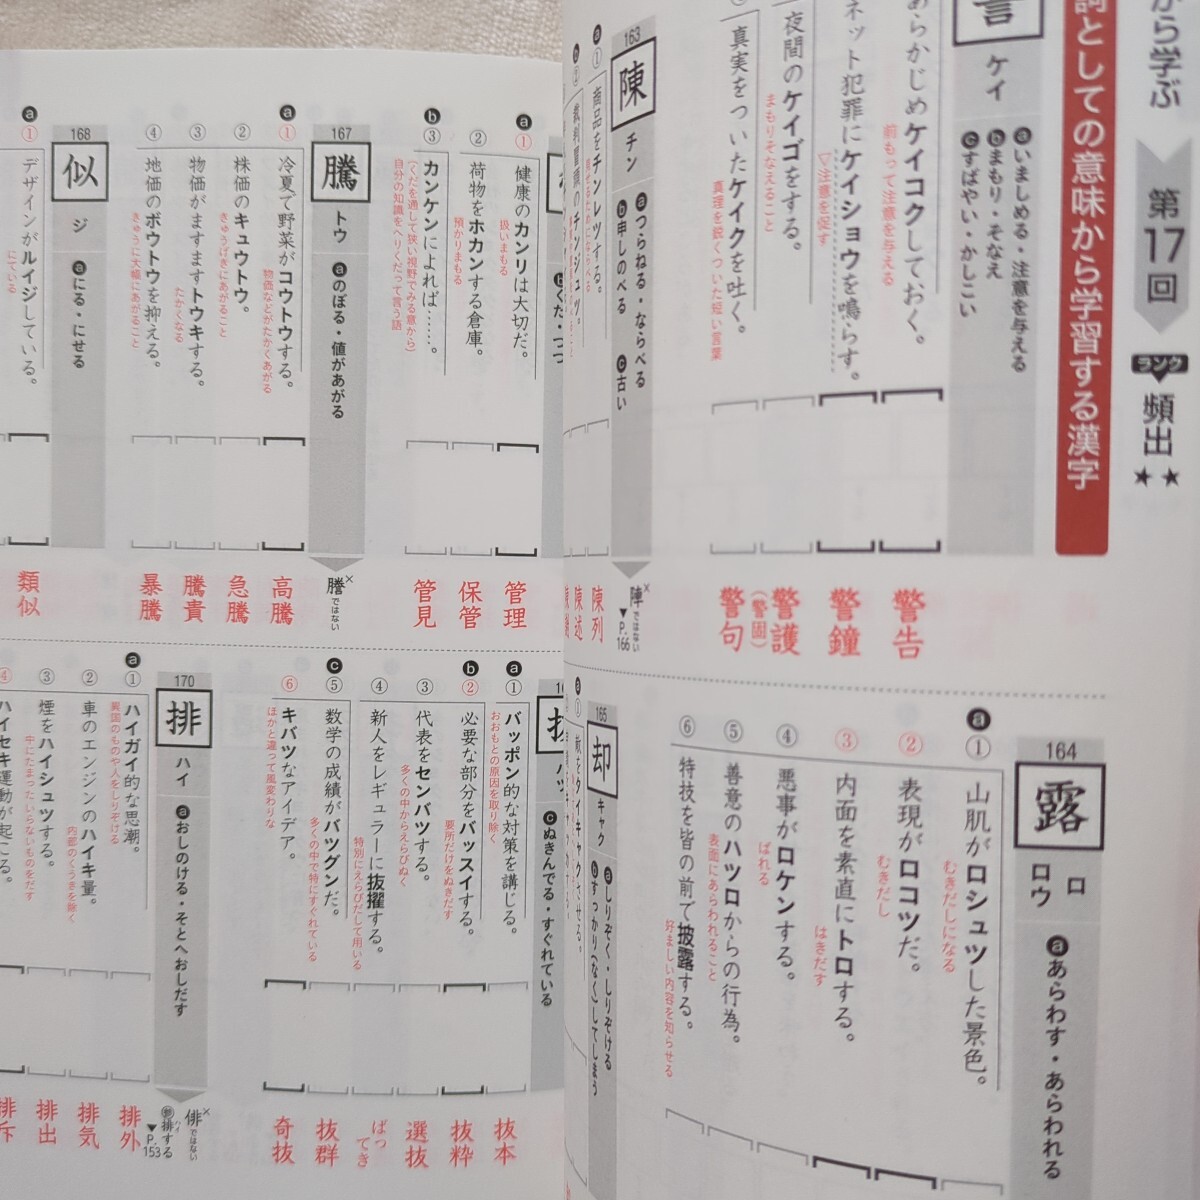 から学ぶ
第17回
ランク
頻出
★★
詞としての意味から学習する漢字
ケイ
ⓐいましめる・注意を与える
ⓑまもり・そなえ
ⓒすばやい・かしこい
あらかじめケイコクしておく。
前もって注意を与える
警告
ネット犯罪にケイショウを鳴らす。
▽注意を促す
警鐘
夜間のケイゴをする。
まもりそなえること
警護
（警固）
真実をついたケイクを吐く。
真理を鋭くついた短い言葉
警句
163
陳
チン
ⓐつらねる・ならべる
ⓑ申しのべる
ⓒ古い
×陣ではない
▼P.166
ⓐ
①商品をチンレツする。
陳列
陳述
164
露
ロ
ロウ
ⓐあらわす・あらわれる
ⓐ
①山肌がロシュツした景色。
むきだしになる
②表現がロコツだ。
むきだし
③内面を素直にトロする。
はきだす
④悪事がロケンする。
ばれる
⑤善意のハツロからの行為。
表面にあらわれること
⑥特技を皆の前で披露する。
好ましい内容を知らせる
165
却
キャク
ⓐしりぞく・しりぞける
ⓑすっかり（なく）してしまう
ⓐ
①健康のカンリは大切だ。
扱いまもる
管理
②荷物をホカンする倉庫。
預かりまもる
保管
ⓑ
③カンケンによれば……。
（くだを通して狭い視野でみる意から）
自分の知識をへりくだって言う語
管見
167
騰
トウ
ⓐのぼる・値があがる
×謄ではない
ⓐ
①冷夏で野菜がコウトウする。
物価などがたかくあがる
高騰
②株価のキュウトウ。
きゅうげきにあがること
急騰
③物価がますますトウキする。
たかくなる
騰貴
④地価のボウトウを抑える。
きゅうに大幅にあがること
暴騰
168
似
ジ
ⓐにる・にせる
ⓐ
①デザインがルイジしている。
にている
類似
ⓒぬきんでる・すぐれている
ⓐ
①バッポン的な対策を講じる。
おおもとの原因を取り除く
抜本
ⓑ
②必要な部分をバッスイする。
要所だけをぬきだす
抜粋
③代表をセンバツする。
多くの中からえらびぬく
選抜
④新人をレギュラーに抜擢する。
特別にえらびだして用いる
ばってき
ⓒ
⑤数学の成績がバツグンだ。
多くの中で特にすぐれている
抜群
⑥キバツなアイデア。
ほかと違って風変わりな
奇抜
170
排
ハイ
ⓐおしのける・そとへおしだす
×俳ではない
参排する
▼P.153
ⓐ
①ハイガイ的な思潮。
異国のものや人をしりぞける
排外
②車のエンジンのハイキ量。
内部のくうきを除く
排気
③煙をハイシュツする。
中にたまったいらないものをだす
排出
④ハイセキ運動が起こる。
排斥